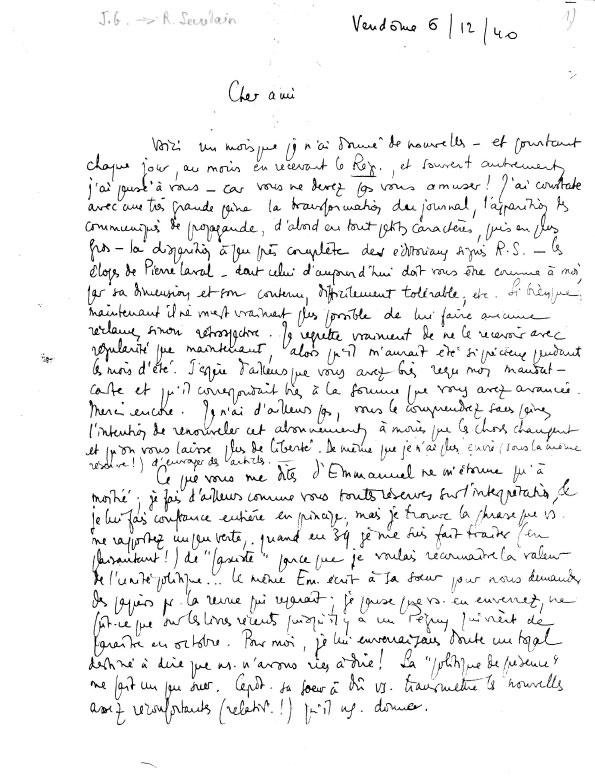 J.G. → R. Secrétain
1)
Vendome 6/12/40
Cher ami
Voici un mois que je n'ai donné de nouvelles – et pourtant
chaque jour, au moins en recevant le Rép., et souvent autrement,
j'ai pensé à vous – car vous ne devez pas vous amuser! J'ai constaté
avec une très grande peine la transformation du journal, l'apparition des
communiqués de propagande, d'abord en tout petits caractères, puis en plus
gros – la disparition à peu près complète des éditoriaux signés R.S. – les
éloges de Pierre Laval – dont celui d'aujourd'hui doit vous être comme à moi,
par sa dimension et son contenu, difficilement tolérable, etc. Si bien que
maintenant il ne m'est vraiment plus possible de lui faire aucune
réclame, sinon rétrospective. Je regrette vraiment de ne le recevoir avec
régularité que maintenant, alors qu'il m'aurait été si précieux pendant
les mois d'été. J'espère d'ailleurs que vous avez bien reçu mon mandat-
carte et qu'il correspondait bien à la somme que vous avez avancée.
Merci encore. Je n'ai d'ailleurs pas, vous le comprendrez sans peine,
l'intention de renouveler cet abonnement, à moins que les choses changent
et qu'on vous laisse plus de liberté. De même que je n'ai plus envie (sous la même
réserve!) d'envoyer des articles.
Ce que vous me dites d'Emmanuel ne m'étonne qu'à
moitié; je fais d'ailleurs comme vous toutes réserves sur l'interprétation, &
je lui fais confiance entière en principe, mais je trouve la phrase que vs.
me rapportez un peu verte, quand en 39 je me suis fait traiter (en
plaisantant!) de "fasciste" parce que je voulais reconnaître la valeur
de l'unité politique... Le même Em. écrit à sa soeur pour nous demander
des papiers pr. la revue qui reparait; je pense que vs. en enverrez, ne
fût-ce que sur les livres récents puisqu'il y a un Péguy qui vient de
paraître en octobre. Pour moi, je lui enverrai sans doute un topo
destiné à dire que ns. n'avons rien à dire! La "politique de présence"
me fait un peu suer. Cepdt. sa soeur a dû vs. transmettre les nouvelles
assez réconfortantes (relativt.!) qu'il ns. donne.